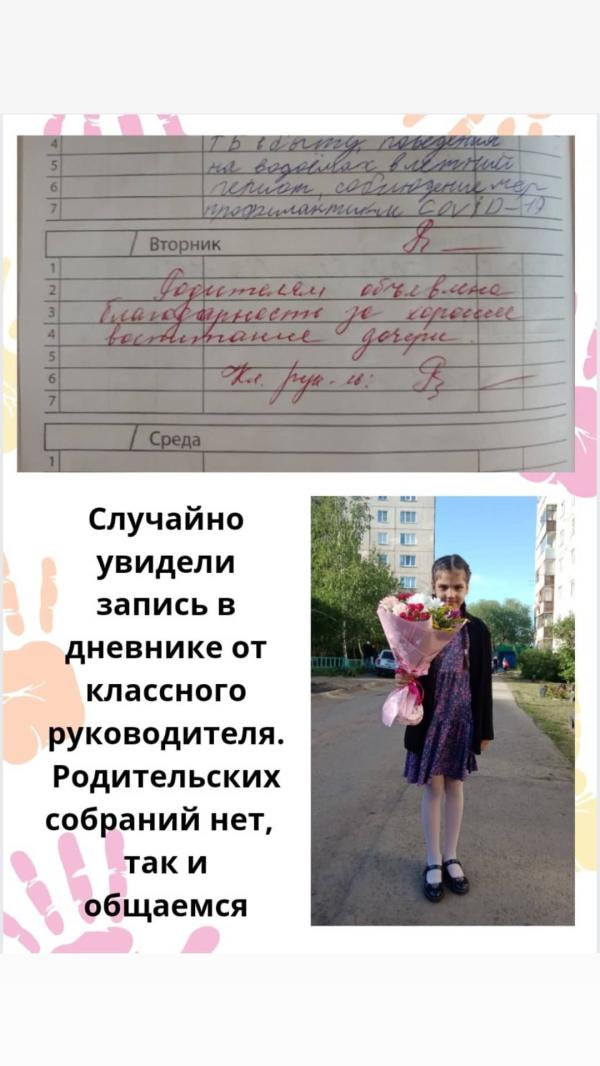 4 ТБ в быту, поведения
5 на водоёмах в летний
6 период, соблюдение мер
7 профилактики COVID-19
Вторник
1
2 Родителям объявлена
3 благодарность за хорошее
4 воспитание дочери.
5
6 Кл. рук-ль:
7
Среда
1
Случайно
увидели
запись в
дневнике от
классного
руководителя.
Родительских
собраний нет,
так и
общаемся